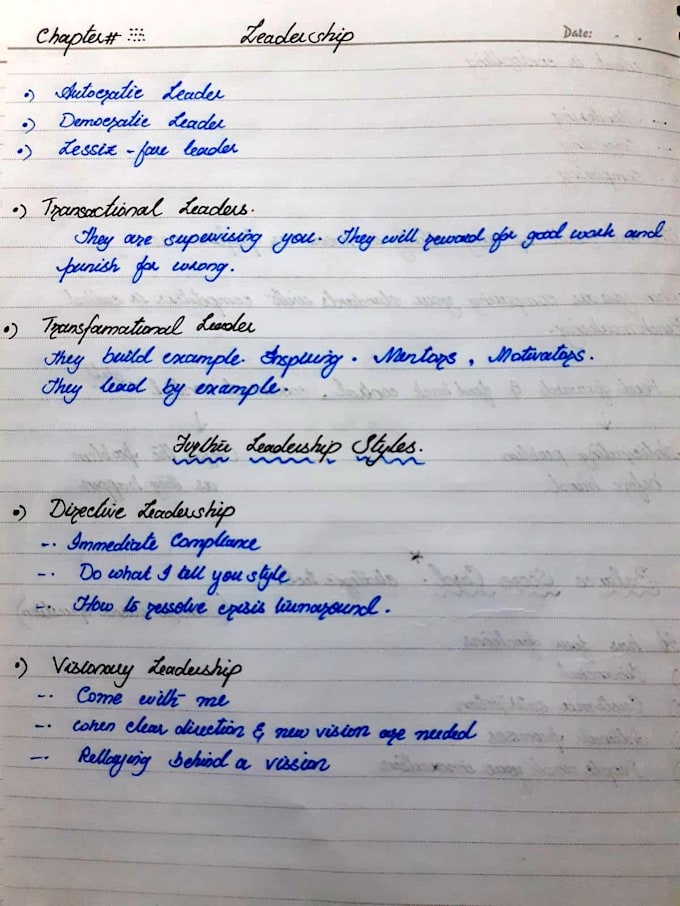 Chapter# Leadership Date:
•) Autocratic Leader
•) Democratic Leader
•) Lessiz-fare leader
•) Transactional Leaders.
They are supervising you. They will reward for good work and
punish for wrong.
•) Transfamational Leader
They build example. Inspiring. Mentors, Motivators.
They lead by example.
Further Leadership Styles.
•) Directive Leadership
-. Immediate Compliance
-. Do what I tell you style
-. How to ressolve crisis turnaround.
•) Visionary Leadership
-. Come with me
-. when clear direction & new vision are needed
-. Rellaying behind a vission